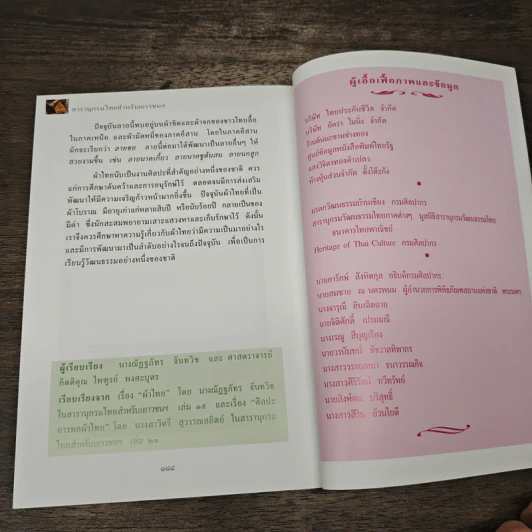 สารานุกรมไทยสำหรับเยาวชนฯ
ปัจจุบันลายนี้พบอยู่บนผ้าซิดและผ้าจกของชาวไทยลื้อ
ในภาคเหนือ และผ้ามัดหมี่ของภาคอีสาน โดยในภาคอีสาน
มักจะเรียกว่า ลายขอ ลายนี้ต่อมาได้พัฒนาเป็นลายอื่นๆ ให้
สวยงามขึ้น เช่น ลายนาคเกี้ยว ลายนาคชูต้นสน ลายนกฮูก
ผ้าไทยนับเป็นงานศิลปะที่สำคัญอย่างหนึ่งของชาติ ควร
แก่การศึกษาค้นคว้าและการอนุรักษ์ไว้ ตลอดจนมีการส่งเสริม
พัฒนาให้มีความเจริญก้าวหน้ามากยิ่งขึ้น ปัจจุบันผ้าไทยที่เป็น
ผ้าโบราณ มีอายุเก่าแก่หลายสิบปี หรือนับร้อยปี กลายเป็นของ
มีค่า ซึ่งนักสะสมพยายามเสาะแสวงหาและเก็บรักษาไว้ ดังนั้น
เราจึงควรศึกษาหาความรู้เกี่ยวกับผ้าไทยว่ามีความเป็นมาอย่างไร
และมีการพัฒนามาเป็นลำดับอย่างไรจนถึงปัจจุบัน เพื่อเป็นการ
เรียนรู้วัฒนธรรมอย่างหนึ่งของชาติ
ผู้เรียบเรียง นางณัฏฐภัทร จันทวิช และ ศาสตราจารย์
กิตติคุณ ไพฑูรย์ พงศะบุตร
เรียบเรียงจาก เรื่อง “ผ้าไทย” โดย นางณัฏฐภัทร จันทวิช
ในสารานุกรมไทยสำหรับเยาวชนฯ เล่ม ๑๕ และเรื่อง “ศิลปะ
การทอผ้าไทย” โดย นางสาวิตรี สุวรรณสถิตย์ ในสารานุกรม
ไทยสำหรับเยาวชนฯ เล่ม ๒๑
๑๘๘
ผู้เอื้อเฟื้อภาพและข้อมูล
บริษัท ไทยประกันชีวิต จำกัด
บริษัท อัครา ไมนิ่ง จำกัด
ร้านต้นมะขามช่างทอง
ศูนย์ข้อมูลหนังสือพิมพ์ไทยรัฐ
แสงวิจิตรทองคำเปลว
ห้างหุ้นส่วนจำกัด ตั้งโต๊ะกัง
มรดกวัฒนธรรมบ้านเชียง กรมศิลปากร
สารานุกรมวัฒนธรรมไทยภาคต่างๆ มูลนิธิสารานุกรมวัฒนธรรมไทย
ธนาคารไทยพาณิชย์
Heritage of Thai Culture กรมศิลปากร
นายอารักษ์ สังหิตกุล อธิบดีกรมศิลปากร
นายสมชาย ณ นครพนม ผู้อำนวยการพิพิธภัณฑสถานแห่งชาติ พระนคร
นางจารุณี อินเฉิดฉาย
นายธิติศักดิ์ เปรมมณี
นางเรณู สีบุญเรือง
นายวรนันทน์ ชัชวาลทิพากร
นางสาววรรณทนา ธนาวรรณกิจ
นางสาวศิริรัตน์ ทวีทรัพย์
นายสิงห์คม บริสุทธิ์
นางสาวสิริน ย้วนใยดี